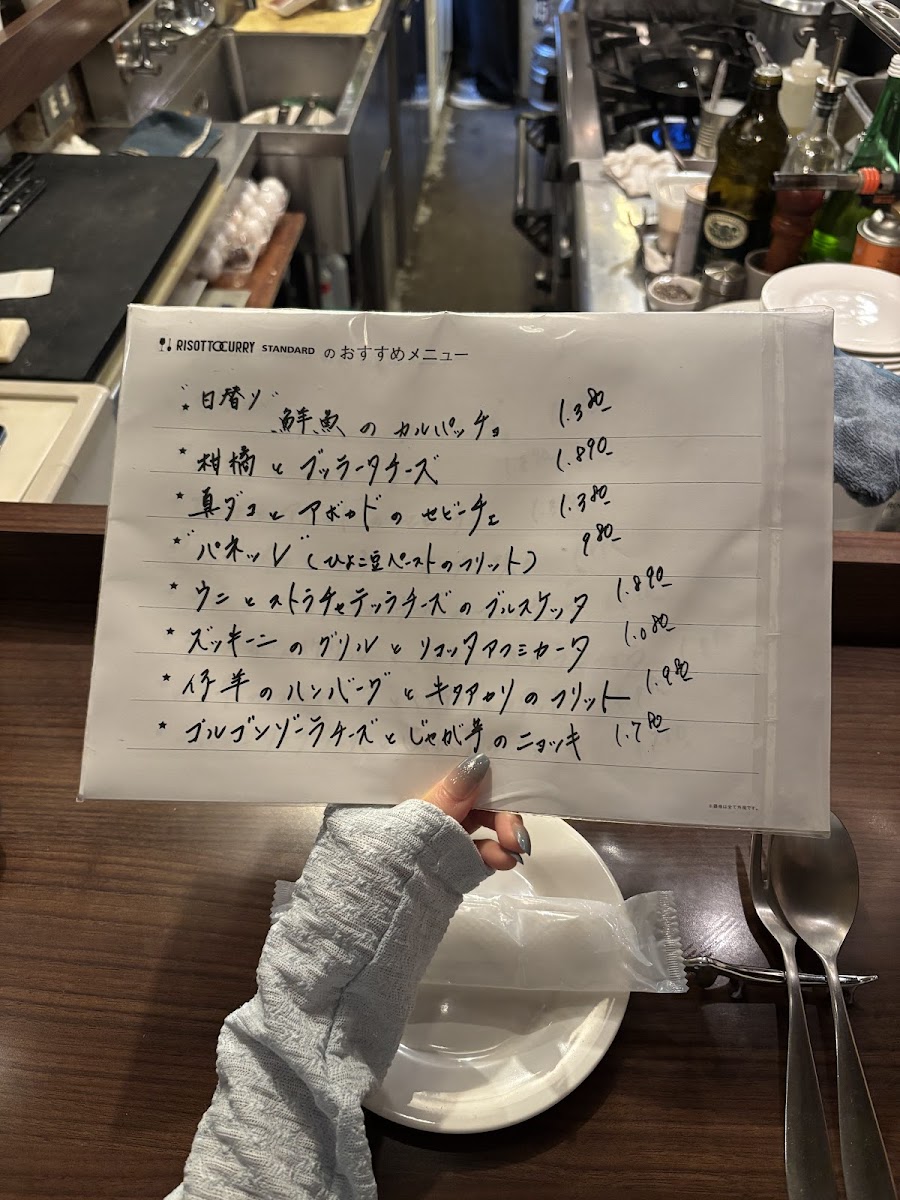 RISOTTOCURRY STANDARD のおすすめメニュー
★ "日替り" 鮮魚のカルパッチョ 1.380-
★ 柑橘とブッラータチーズ 1.890-
★ 真ダコとアボカドのセビーチェ 1.380-
★ "パネッレ" (ひよこ豆ペーストのフリット) 980-
★ ウニとストラチャテッラチーズのブルスケッタ 1.890-
★ ズッキーニのグリルとリコッタアフミカータ 1.080-
★ 仔羊のハンバーグとキタアカリのフリット 1.980-
★ ゴルゴンゾーラチーズとじゃが芋のニョッキ 1.780-
※価格は全て外税です。